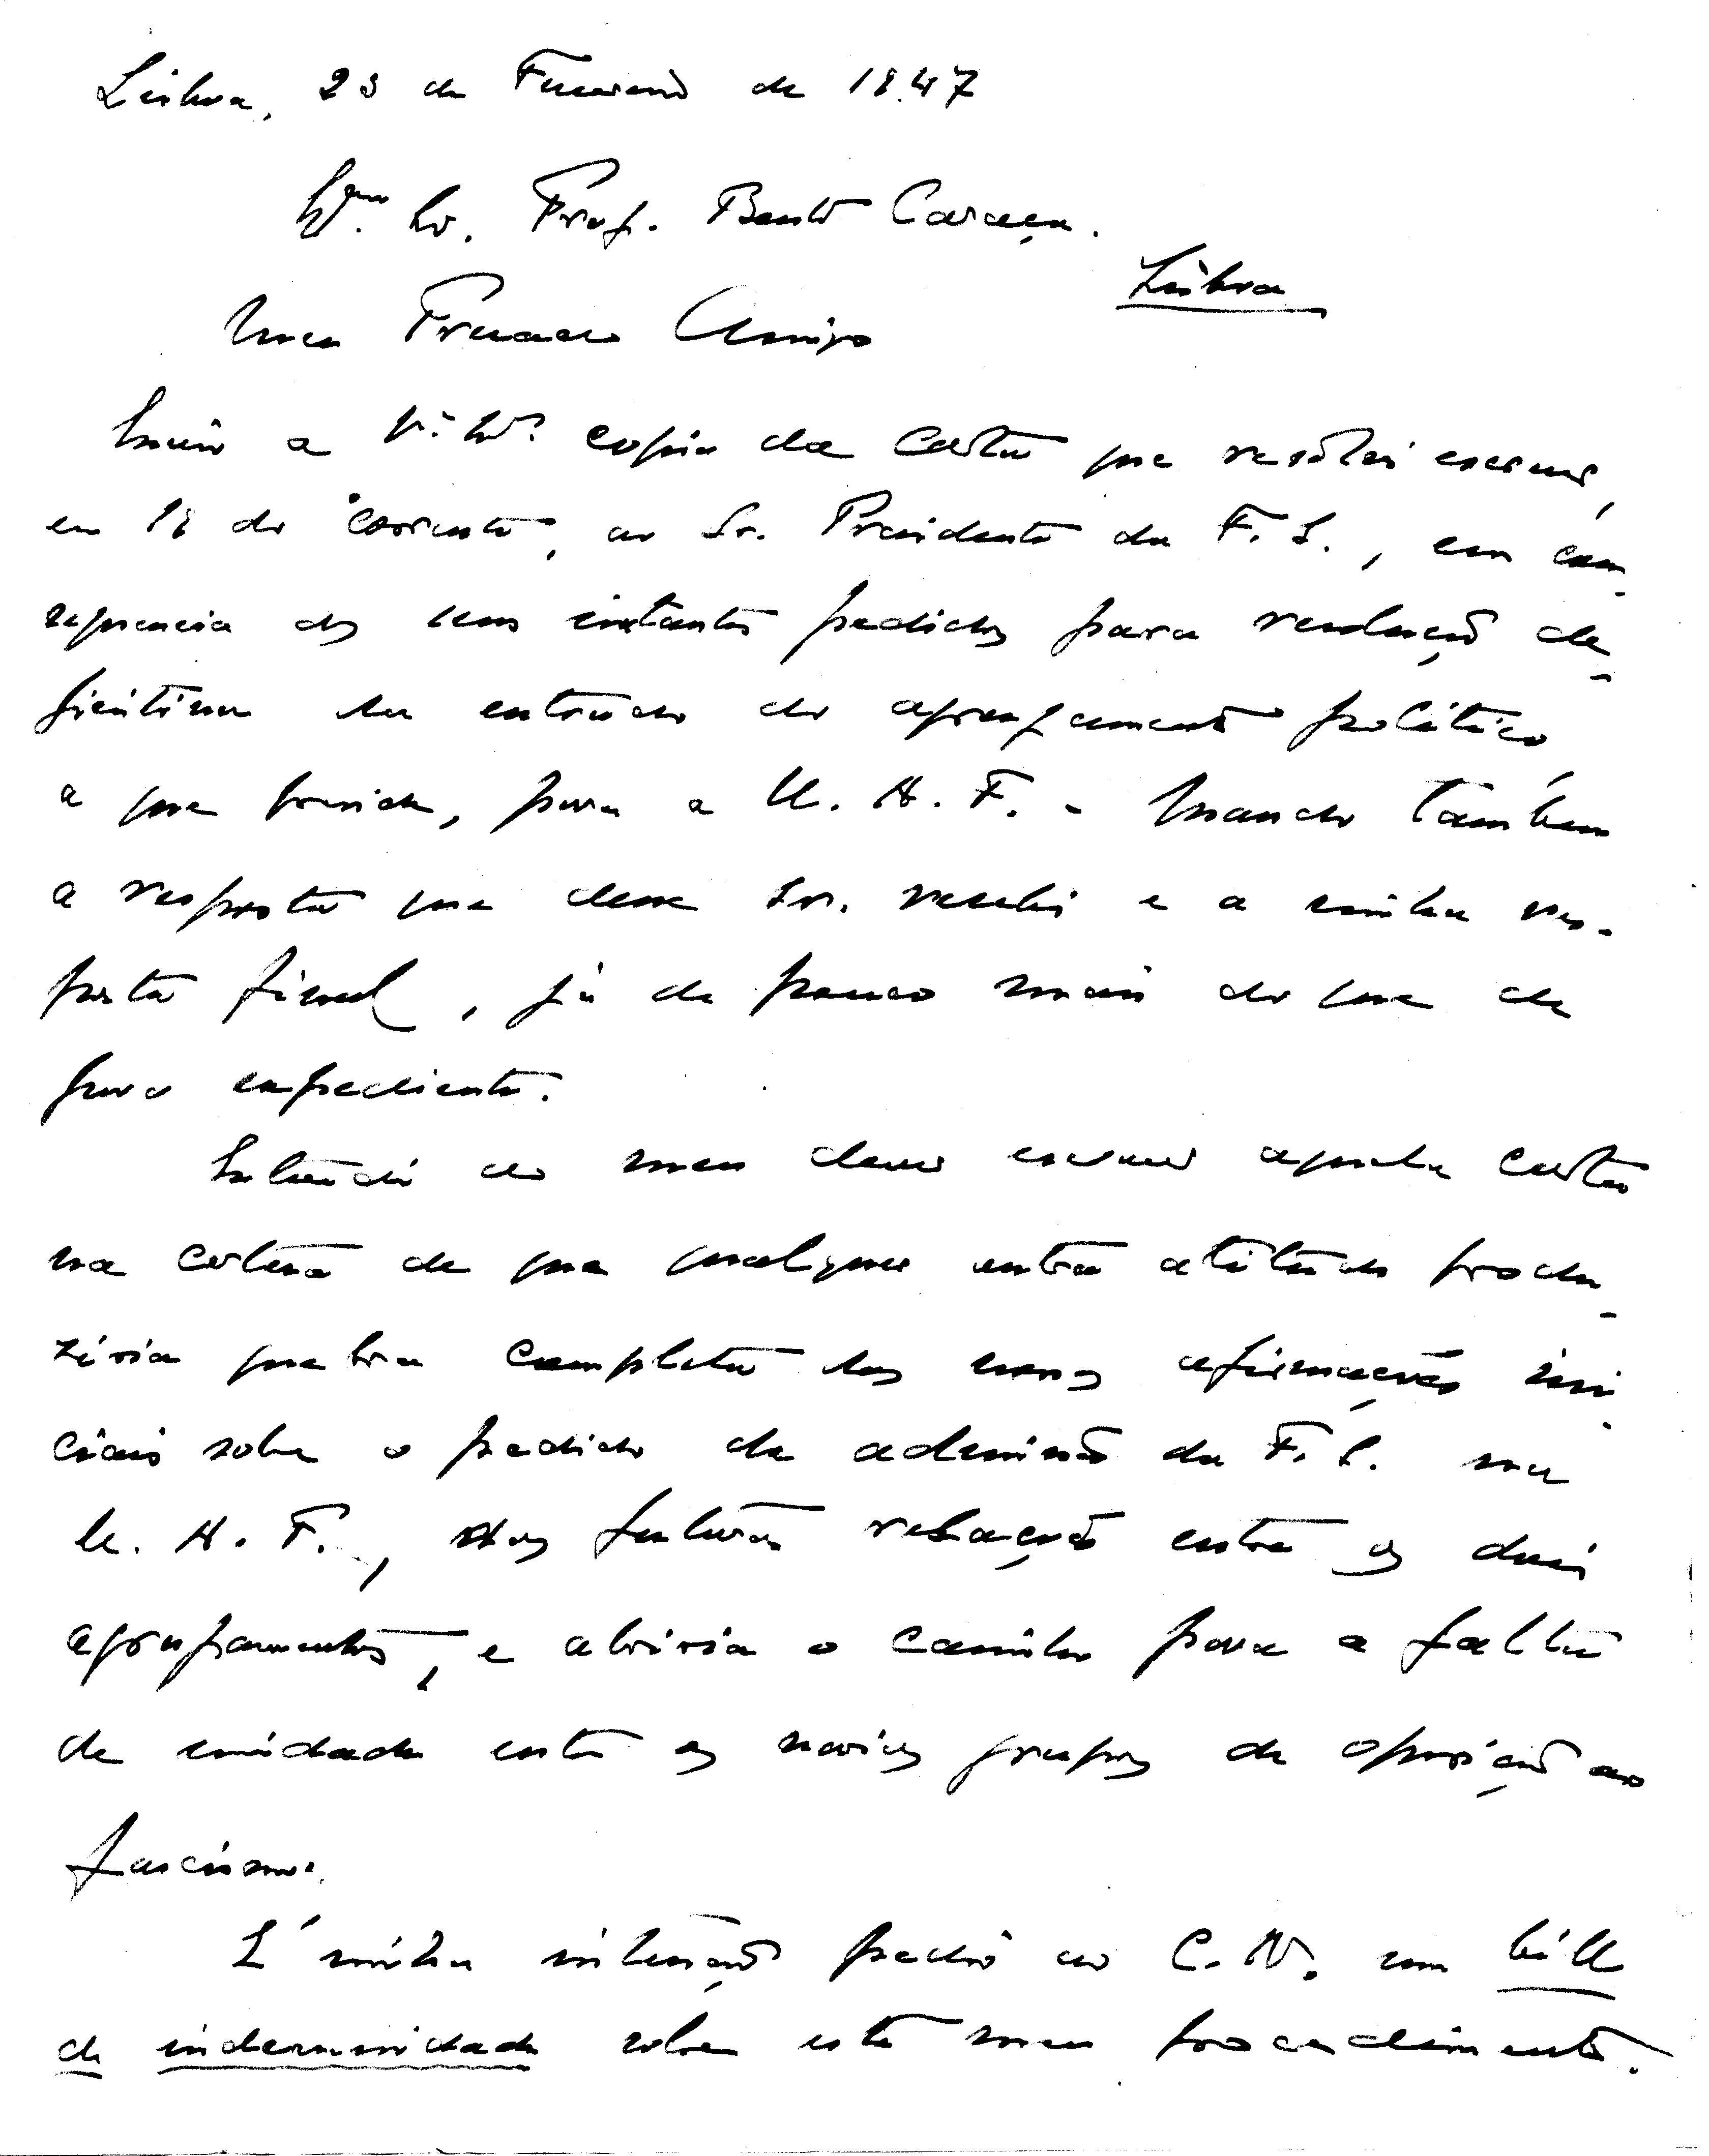 Lisboa, 23 de Fevereiro de 1947
Exmo. Sr. Prof. Bento Caraça.
Lisboa
Meu Prezado Amigo
Envio a V. Exª copia da carta que resolvi escrever,
em 18 do corrente, ao Sr. Presidente da F. S., em con-
sequencia dos seus instantes pedidos para resolução de-
finitiva da entrada do agrupamento político,
a que preside, para a U. A. F. - Mando também
a resposta que desse Sr. recebi e a minha res-
posta final, já de pouco mais do que de
puro expediente.
Entendi do meu dever escrever aquela carta
na certeza de que qualquer outra atitude produ-
ziria quebra completa das nossas afirmações ini-
ciais sobre o pedido de admissão da F. S. na
U. A. F., nas futuras relações entre os dois
agrupamentos, e abriria o caminho para a falta
de unidade entre os varios grupos de oposição ao
fascismo.
É minha intenção pedir ao C. N. um bill
de indemnidade sobre este meu procedimento.